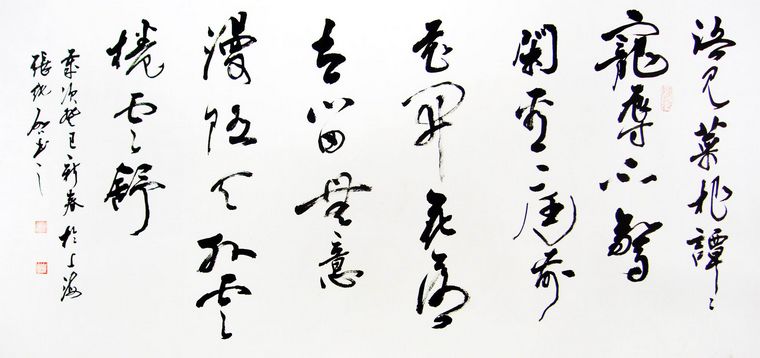 語見菜根譚
寵辱不驚
閑看庭前
花開花落
去留無意
漫随天外雲
捲雲舒
歲次癸巳新春於上海
張